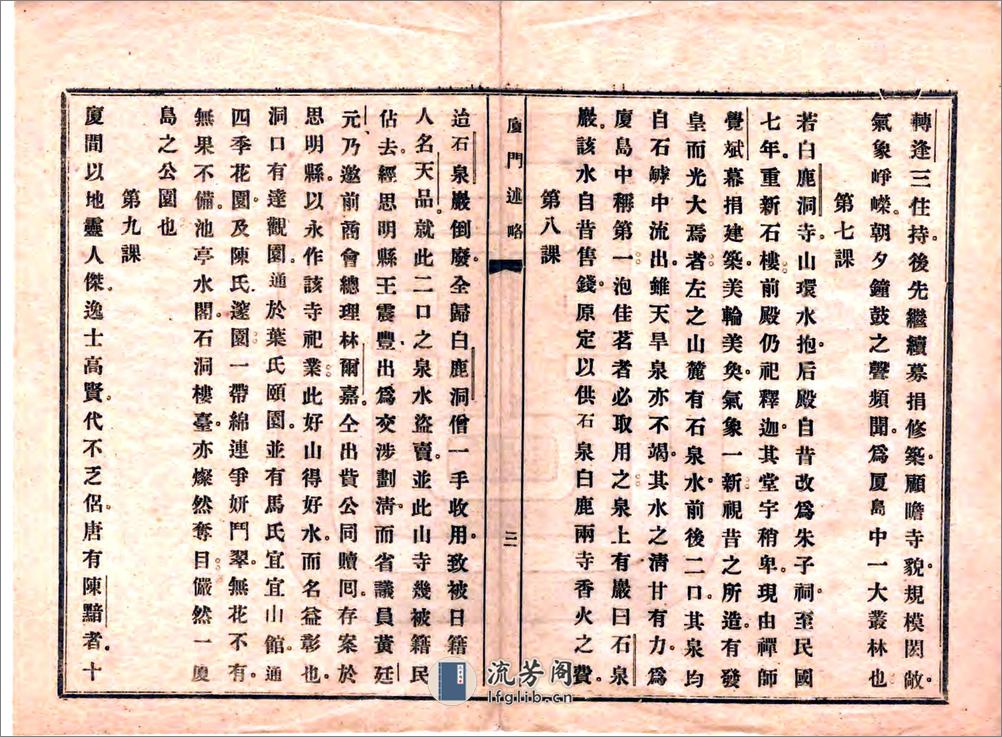 轉逢三住持。後先繼續募捐修築。顧瞻寺貌。規模閎敞。
氣象崢嶸。朝夕鐘鼓之聲頻聞。為厦島中一大叢林也
第七課
若白鹿洞寺。山環水抱。后殿自昔改為朱子祠。至民國
七年。重新石樓。前殿仍祀釋迦。其堂宇稍卑。現由禪師
覺斌。募捐建築。美輪美奐。氣象一新。視昔之所造。有發
皇而光大焉者。左之山麓有石泉水。前後二口。其泉均
自石罅中流出。雖天旱泉亦不竭。其水之淸甘有力。為
厦島中稱第一。泡佳茗者必取用之。泉上有巖曰石泉
巖。該水自昔售錢。原定以供石泉白鹿兩寺香火之費。
第八課
廈門述略
三
造石泉巖倒廢。全歸白鹿洞僧一手收用。致被日籍
人名天品。就此二口之泉水盜賣。並此山寺幾被籍民
佔去。經思明縣王震豐出為交涉劃淸。而省議員黃廷
元。乃邀前商會總理林爾嘉。仝出貲公同贖囘。存案於
思明縣。以永作該寺祀業。此好山得好水。而名益彰也。
洞口有達觀園。通於葉氏頤園。並有馬氏宜宜山館。通
四季花園。及陳氏邃園。一帶綿連。爭妍鬥翠。無花不有。
無果不備。池亭水閣。石洞樓臺。亦燦然奪目。儼然一廈
島之公園也
第九課
廈間以地靈人傑。逸士高賢。代不乏侶。唐有陳黯者。十
流芳阁
lfglib.cn